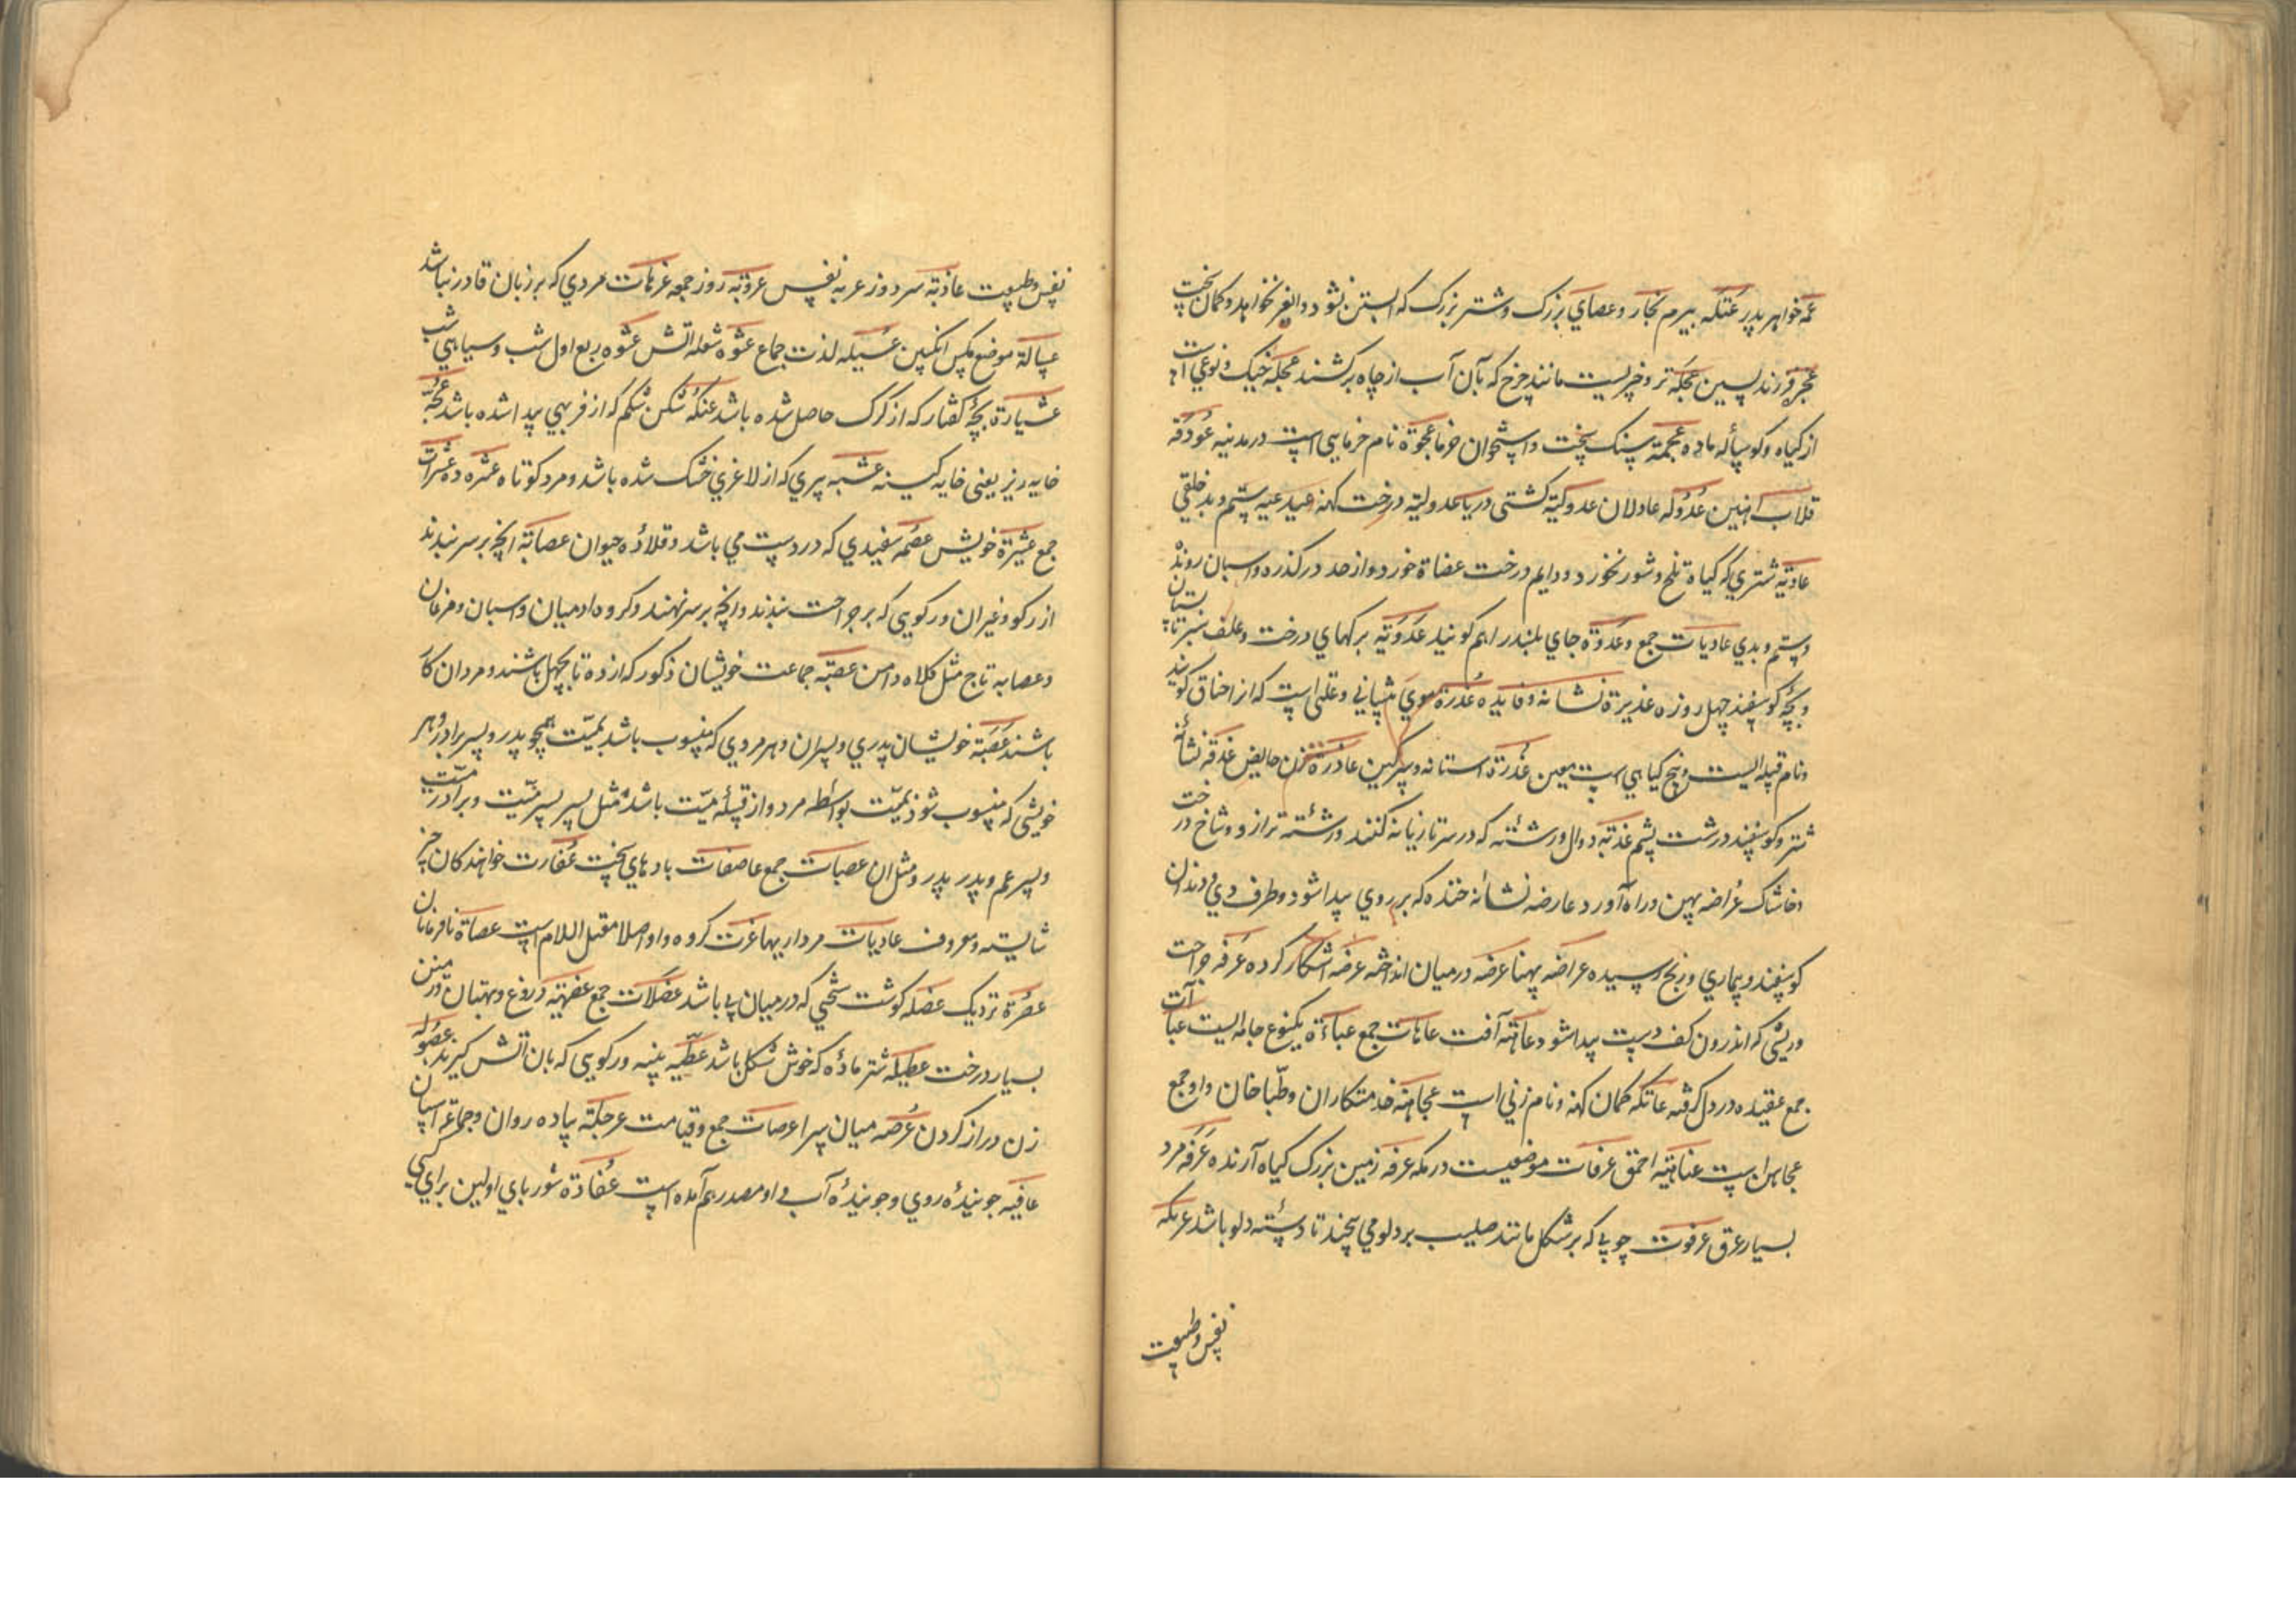 عمه خواهر پدر عتکه بیرم نجار و عصاي بزرک و شتر بزرک که ابستن نشود و کمان سخت
عجزه فرزند پسین عجکه تر و خربیست مانند چرخ که بآن آب از چاه برکشند عجکه خیک و نوعي
از کیاه و کوساله ماده عجمة سنک سخت و استخوان خرما عجوة نام خرمایي است در مدینه عودقه
قلاب اهنین عدوله عادلان عدولیة کشتی دریا عدولیة درخت کهنه عیدعیه ستم و بد خلقی
عادیة شتري که کیاه تلخ و شور نخورد و دایم درخت عضاة خورد و از حد درکذره و اسبان رونده
و ستم و بدي عادیات جمع و عدوة جاي بلند را هم کویند عدویه برکهاي درخت و علف
و بچه کوسفند چهل روزه غدیرة نشانه و فایده عذرة موي پیشاني و علتی است که از احناق کویند
و نام قبیله ایست و پنج کیاهي است معین عذرة استانه و سرکین عاذرة زن حایض عذقه نشانه
شتر و کوسفند درشت پشم عذبة دوال و رشته که در سر تازیانه کنند و رشته ترازو و شاخ درخت
و خاشاک عراضه پهن و راه آورد عارضه نشانه خنده که بر روي پیدا شود و طرف دندان
کوسفند و بیماري و رنج رسیده عراضه پهنا عرضه در میان انداخته عرضه اشکار کرده عرفه جراحت
و ریشي که اندرون کف دست پیدا شود عاهة آفت عاهات جمع عباءة یکنوع جامه ایست عباآت
جمع عقیده در دل کرفته عاتکه کمان کهنه و نام زني است عجاهنه خدمتکاران و طباخان و او جمع
عجاهن است عتاهیه احمق عرفات موضعیست در مکه عرفه زمین بزرک کیاه آرنده عرفه مرد
بسیار عرق عرقوت چوبي که بر شکل مانند صلیب بر دلو مي بیجند تا دسته دلو باشد عریکه
نفس و طبیعت
نفس و طبیعت عاذبة سر دوز عربه نفس عروبة روز جمعه عزهات مردي که بر زنان قادر نباشد
عسالة موضع مکس انکبین عسیله لذت جماع عشوه شعله اتش عشوه ربع اول شب و سیاهي شب
عشیارة بچه کفتار که از کرک حاصل شده باشد عنکه شکن شکم که از فربهي پیدا شده باشد عجبه
خایه ریز یعنی خایه کینه عشبه پیري که از لاغري خشک شده باشد و مرد کوتاه عشره ده عشرات
جمع عشیرة خویش عصمه سفیدي که در دست مي باشد و قلاده حیوان عصابة انچه بر سر بندند
از رکو و غیر ان و رکویي که بر جراحت بندند و انچه بر سر نهند و کروه ادمیان و اسبان و مرغان
و عصابه تاج مثل کلاه و امن عصبة جماعت خویشان ذکور که از ده تا بچهل باشند و مردان کار
باشند عصبة خویشان پدري و پسران و هر مردي که منسوب باشد بمیت همچو پدر و پسر برادر و هر
خویشي که منسوب شود بمیت بواسطه مرد و از قبیله میت باشد مثل پسر پسر میت و برادر میت
و پسر عم و پدر پدر و مثل ان عصبات جمع عاصفات بادهاي سخت عفارت خواهندکان چیز
شایسته و معروف عادیات مردار بیها عزت کروه و او اصلا معتل اللام است عصاة نافرمانان
عصرة نزدیک عضله کوشت سختي که در میان پی باشد عضلات جمع عضیهة دروغ و بهتان و زمین
بسیار درخت عطیله شتر ماده که خوش شکل باشد عطبه پنبه و رکویي که بان اتش کیرند
زن دراز کردن عرصه میان سرا عرصات جمع و قیامت عرجلة پیاده روان و جماعة اسبان
عافیه جوینده روزي و جوینده آب و او مصدر هم آمده است عفاوة شورباي اولین براي کسي